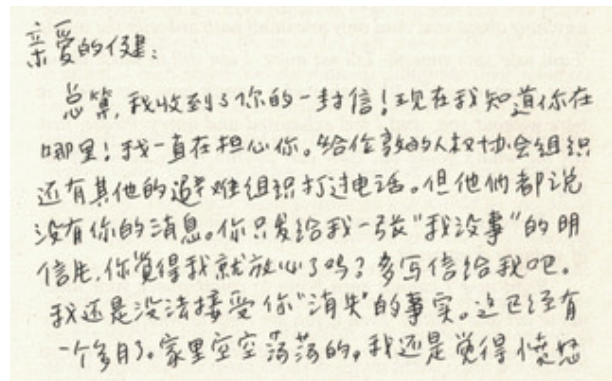 亲爱的健：
总算，我收到了你的一封信！现在我知道你在
哪里！我一直在担心你。给伦敦的人权协会组织
还有其他的避难组织打过电话。但他们都说
没有你的消息。你只发给我一张“我没事”的明
信片，你觉得我就放心了吗？多写信给我吧。
我还是没法接受你“消失”的事实。这已经有
一个多月了。家里空空荡荡的，我还是觉得愤怒